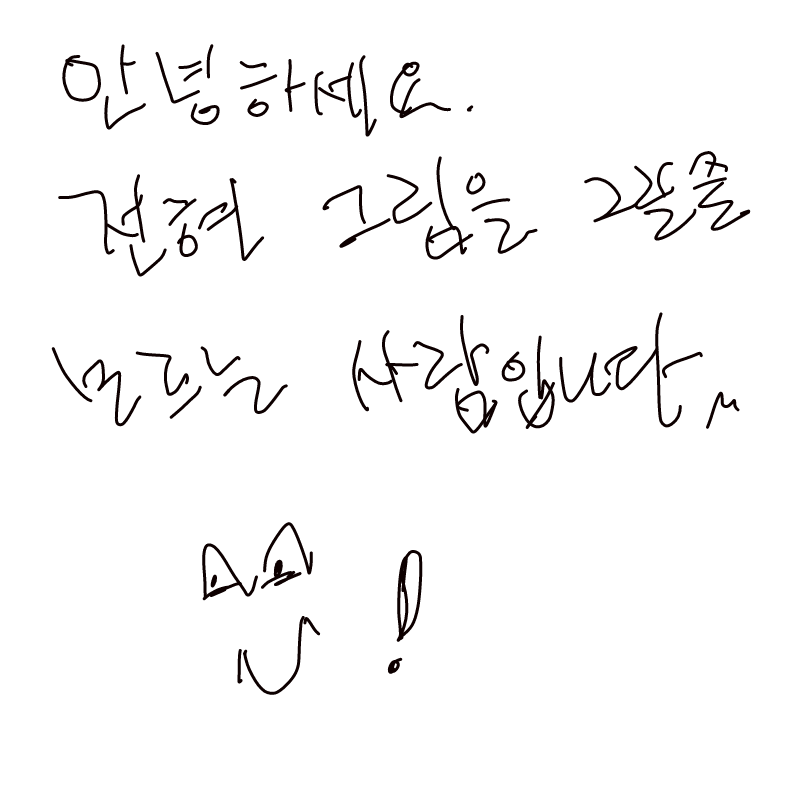 안녕하세요.
전혀 그림을 그릴줄
모르는 사람입니다
!